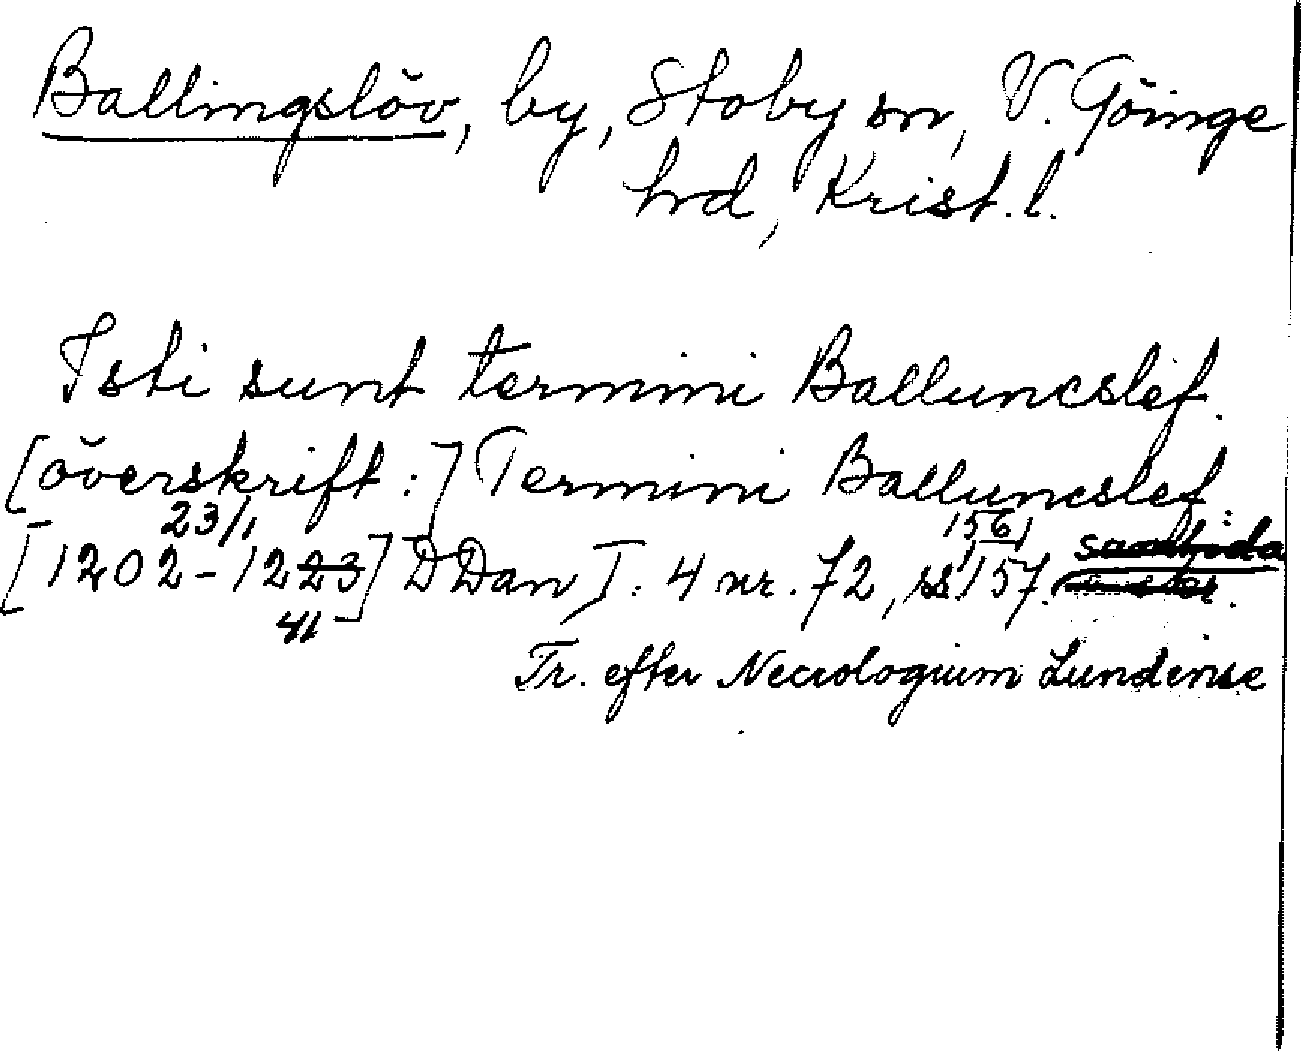 Ballingslöv, by, Stoby sn, V. Göinge
hrd, Krist. l.
Isti sunt termini Balluncslef.
[överskrift:] Termini Balluncslef:
23/1 156,
[1202-1223] DDan I: 4 nr. 72, ss 157. samtida
41
Tr. efter Necrologium Lundense